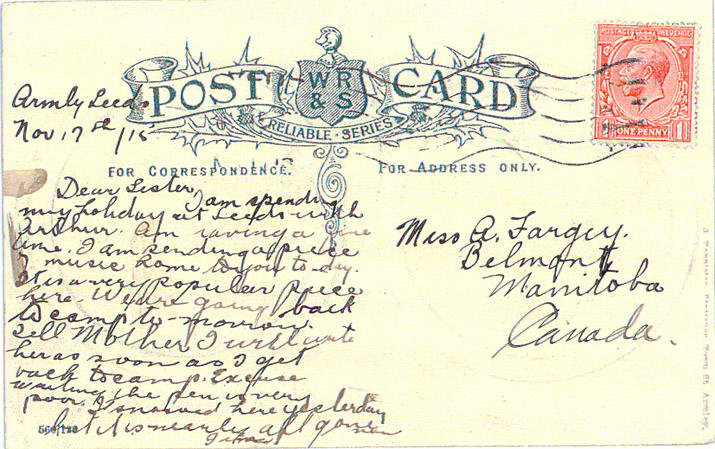 POST CARD
WR
& S
RELIABLE SERIES
POSTAGE REVENUE
ONE PENNY
Armly Leeds
Nov. 17th/15
FOR CORRESPONDENCE.
FOR ADDRESS ONLY.
Dear Sister, I am spending
my holiday at Leeds with
Arthur. Am having a fine
time. I am sending a piece
of music home to you to-day.
It is a very popular piece
here. We are going back
to camp to-morrow.
Tell Mother I will write
her as soon as I get
back to camp. Excuse
writing the pen is very
poor. It snowed here yesterday
but it is nearly all gone
now
Miss A. Fargey.
Belmont
Manitoba
Canada.